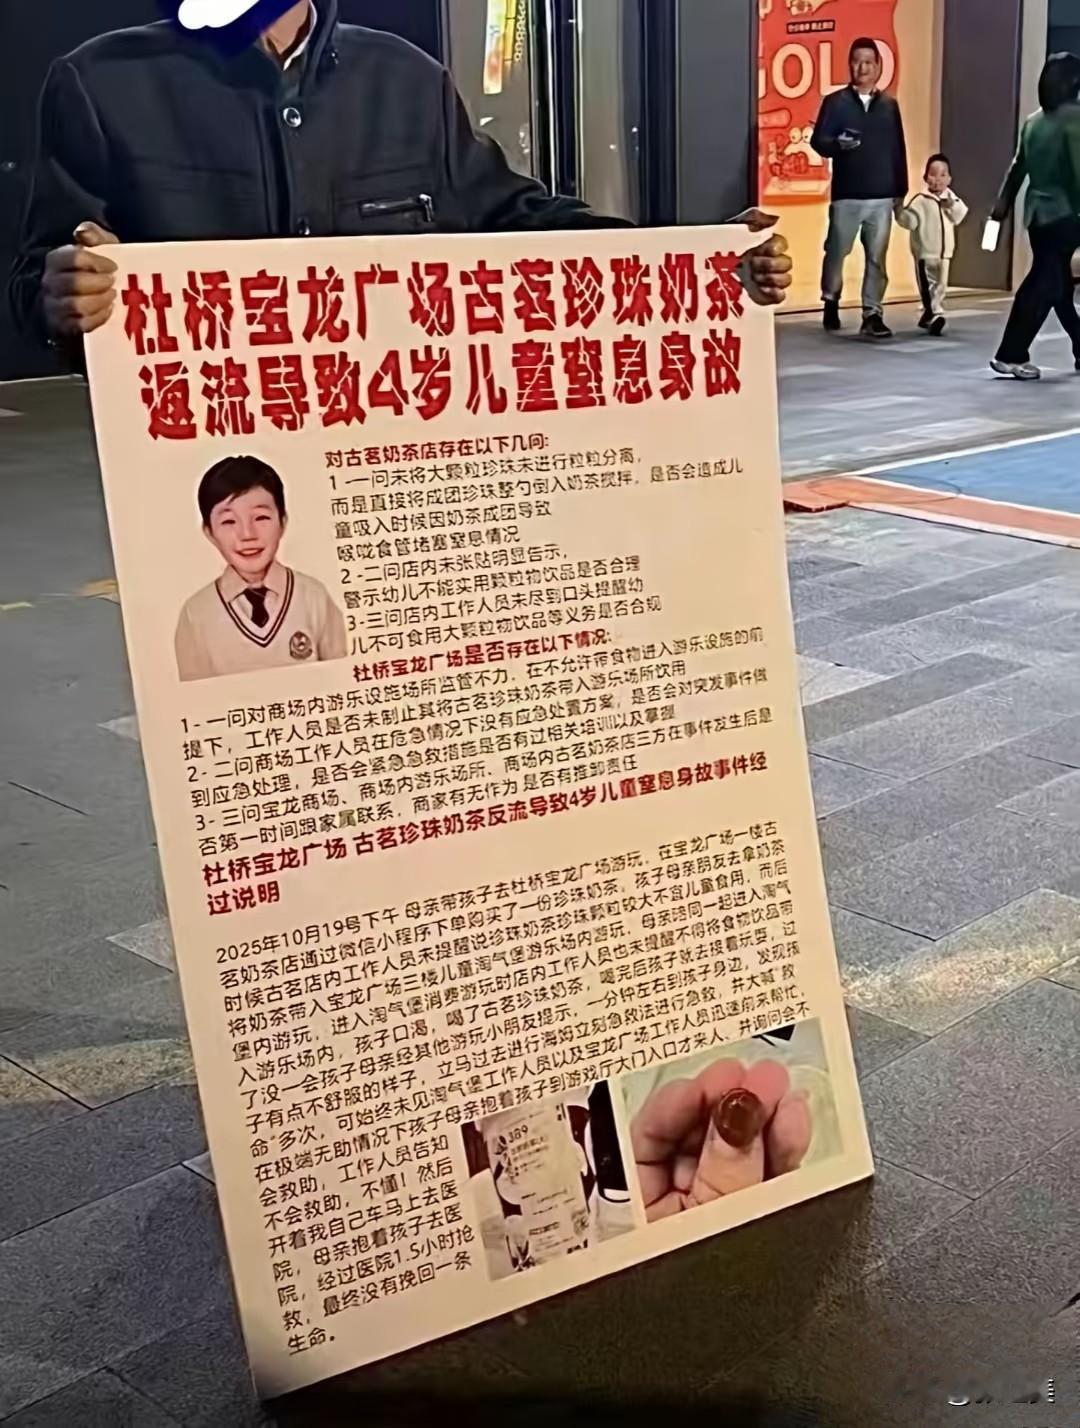 GOLD
杜桥宝龙广场古茗珍珠奶茶
返流导致4岁儿童窒息身故
对古茗奶茶店存在以下几问:
1 -一问未将大颗粒珍珠未进行粒粒分离，
而是直接将成团珍珠整勺倒入奶茶搅拌，是否会造成儿
童吸入时候因奶茶成团导致
喉咙食管堵塞窒息情况
2 -二问店内未张贴明显告示，
警示幼儿不能实用颗粒物饮品是否合理
3-三问店内工作人员未尽到口头提醒幼
儿不可食用大颗粒物饮品等义务是否合规
杜桥宝龙广场是否存在以下情况:
1- 一问对商场内游乐设施场所监管不力，在不允许带食物进入游乐设施的前
提下，工作人员是否未制止其将古茗珍珠奶茶带入游乐场所饮用
2- 二问商场工作人员在危急情况下没有应急处置方案，是否会对突发事件做
到应急处理，是否会紧急急救措施是否有过相关培训以及掌握
3- 三问宝龙商场、商场内游乐场所、商场内古茗奶茶店三方在事件发生后是
否第一时间跟家属联系，商家有无作为 是否有推卸责任
杜桥宝龙广场 古茗珍珠奶茶反流导致4岁儿童窒息身故事件经
过说明
2025年10月19号下午 母亲带孩子去杜桥宝龙广场游玩，在宝龙广场一楼古
茗奶茶店通过微信小程序下单购买了一份珍珠奶茶，孩子母亲朋友去拿奶茶
时候古茗店内工作人员未提醒说珍珠奶茶珍珠颗粒较大不宜儿童食用，而后
将奶茶带入宝龙广场三楼儿童淘气堡游乐场内游玩，母亲陪同一起进入淘气
堡内游玩，进入淘气堡消费游玩时店内工作人员也未提醒不得将食物饮品带
入游乐场内，孩子口渴，喝了古茗珍珠奶茶，喝完后孩子就去接着玩耍，过
了没一会孩子母亲经其他游玩小朋友提示，一分钟左右到孩子身边，发现孩
子有点不舒服的样子，立马过去进行海姆立刻急救法进行急救，并大喊“救
命”多次，可始终未见淘气堡工作人员以及宝龙广场工作人员迅速前来帮忙，
在极端无助情况下孩子母亲抱着孩子到游戏厅大门入口才来人，并询问会不
会救助，工作人员告知
不会救助，不懂！然后
开着我自己车马上去医
院，母亲抱着孩子去医
院，经过医院1.5小时抢
救，最终没有挽回一条
生命。
389